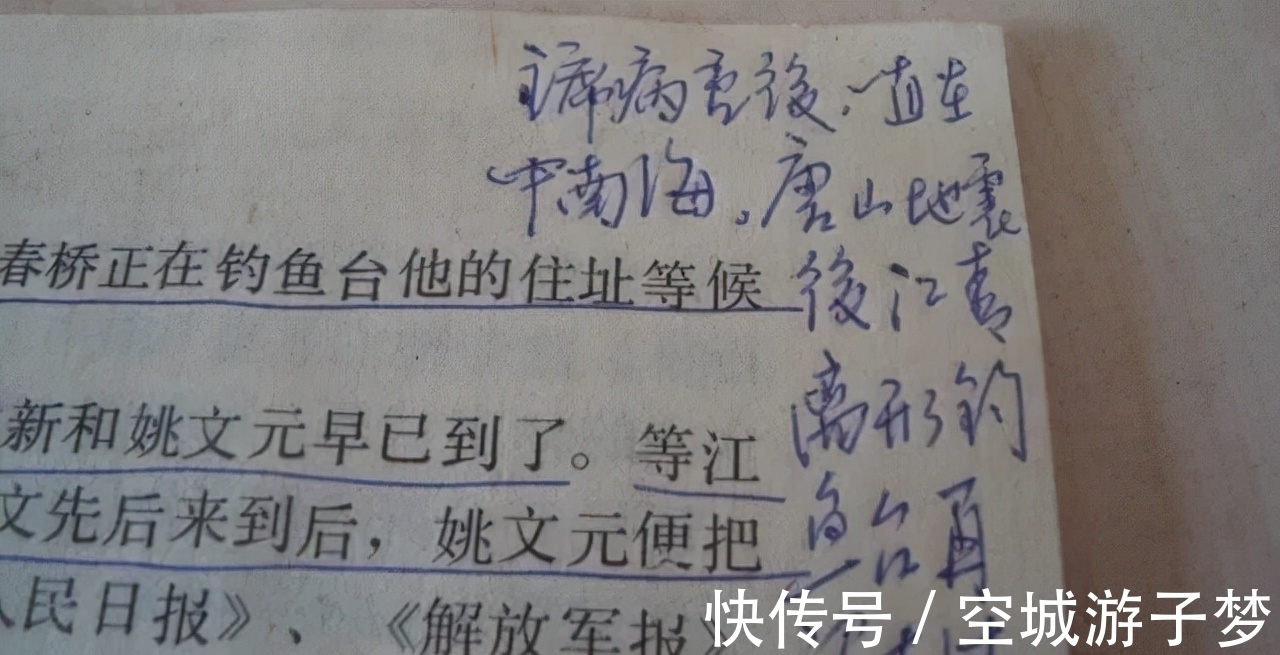 主席病重後，一直在
中南海。唐山地震
後江青
离开钓
鱼台再
春桥正在钓鱼台他的住址等候
新和姚文元早已到了。等江
文先后来到后，姚文元便把
人民日报》、《解放军报》
快传号 / 空城游子梦